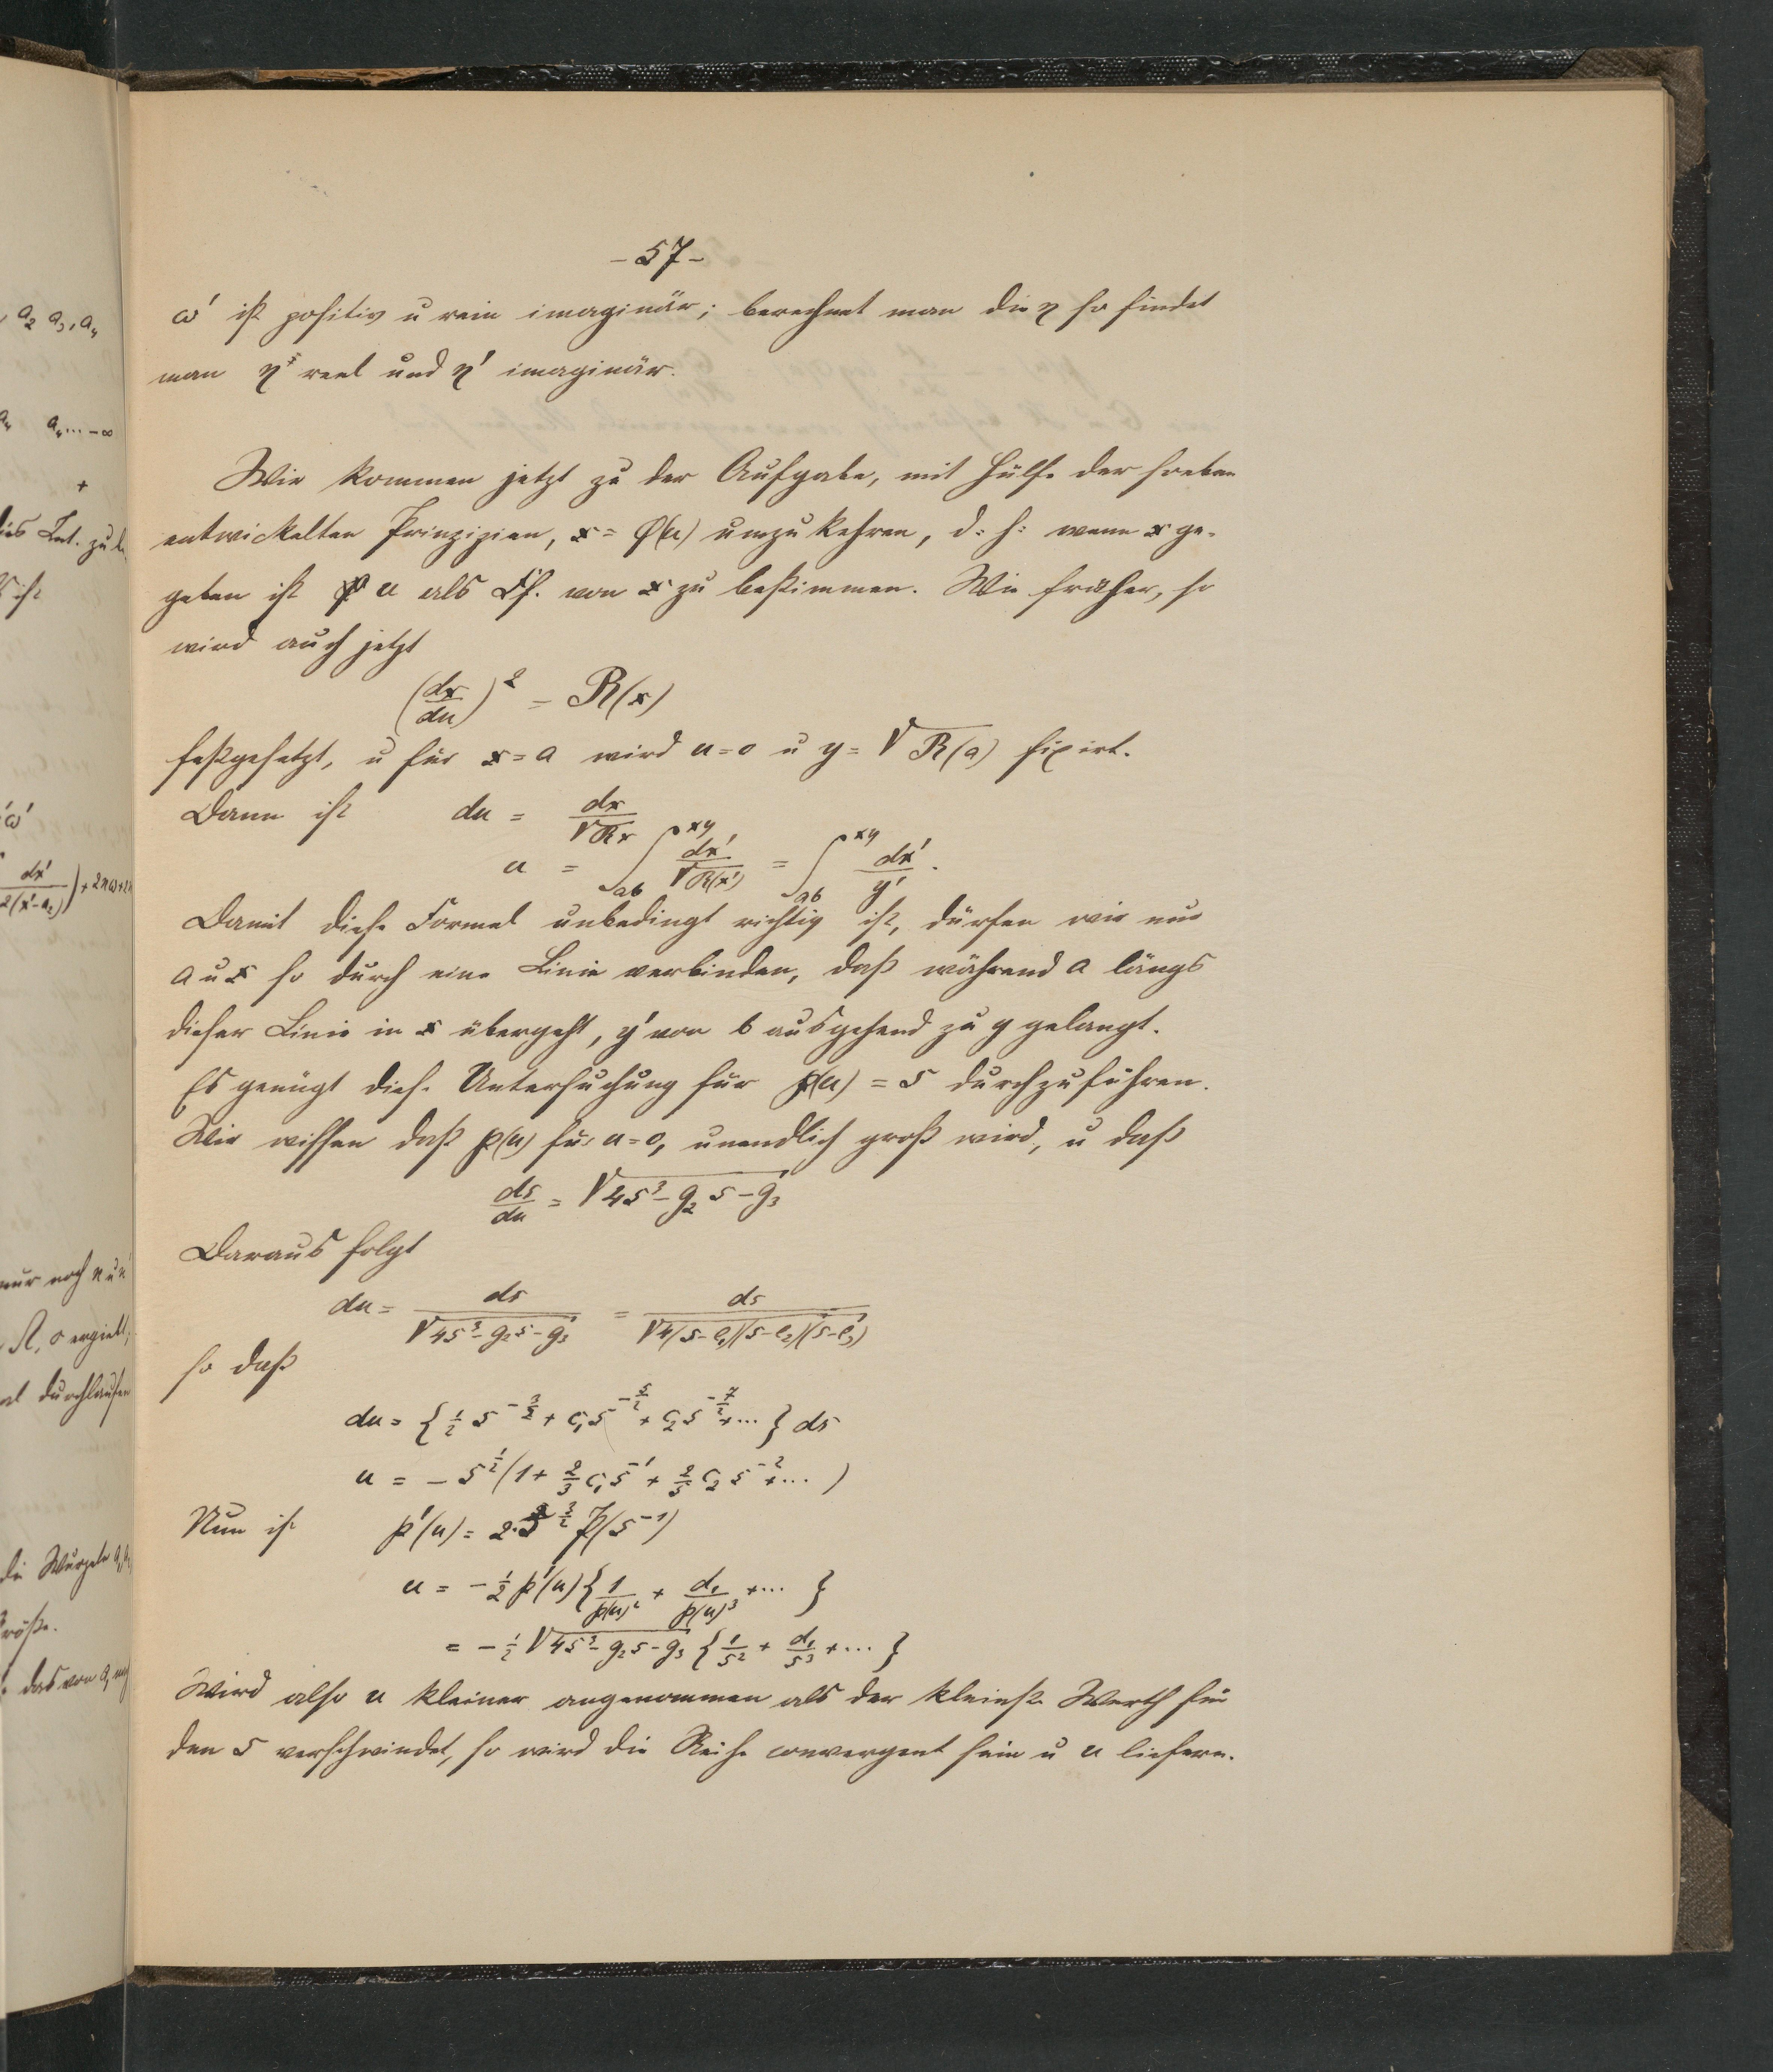 -57-
ω' ist positiv u rein imaginär; berechnet man die η so findet
man η reel und η' imaginär.
Wir kommen jetzt zu der Aufgabe, mit Hülfe der soeben
entwickelten Prinzipien, x = φ(u) umzukehren, d. h: wenn x ge-
geben ist u als Ff. von x zu bestimmen. Wie früher, so
wird auch jetzt
(dx/du)² = R(x)
festgesetzt, u für x = a wird u = 0 u y = √R(a) fixirt.
Dann ist du = dx/√Rx
u = ∫_{ab}^{xy} dx'/√R(x') = ∫_{ab}^{xy} dx'/y'.
Damit diese Formel unbedingt richtig ist, dürfen wir nur
a u x so durch eine Linie verbinden, daß während a längs
dieser Linie in x übergeht, y' von b ausgehend zu y gelangt.
Es genügt diese Untersuchung für ℘(u) = s durchzuführen.
Wir wissen daß ℘(u) für u = 0, unendlich groß wird, u daß
ds/du = √4s³ - g₂s - g₃
Daraus folgt
du = ds/√4s³ - g₂s - g₃ = ds/√4(s-e₁)(s-e₂)(s-e₃)
so daß
du = {½ s^{-3/2} + c₁s^{-5/2} + c₂s^{-7/2} + ... } ds
u = - s^{½}(1 + ⅔ c₁s^{-1} + ⅖ c₂ s^{-2} + ... )
Nun ist ℘'(u) = 2·s^{3/2} P(s^{-1})
u = -½ ℘'(u) {1/℘(u)² + d₁/℘(u)³ + ... }
= -½ √4s³ - g₂s - g₃ {1/s² + d₁/s³ + ... }
Wird also u kleiner angenommen als der kleinste Werth für
den s verschwindet, so wird die Reihe convergent sein u u liefern.